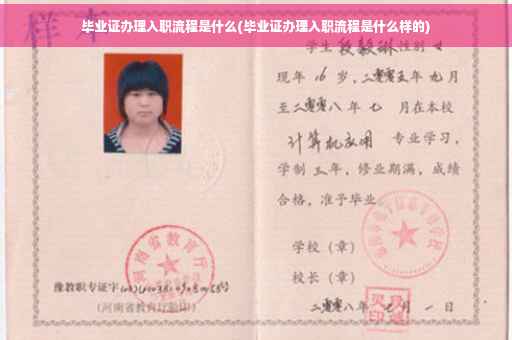 毕业证办理入职流程是什么(毕业证办理入职流程是什么样的)
样本
学生 段毅琳 性别 女
现年 16 岁，二零零五年 九月
至二零零八年 七 月在本校
计算机应用 专业学习，
学制 三 年，修业期满，成绩
合格，准予毕业
学校（章）
校长（章）
二零零八年 七 月 一 日
河南省教育厅
豫教职专证字
(河南省教育厅验印)